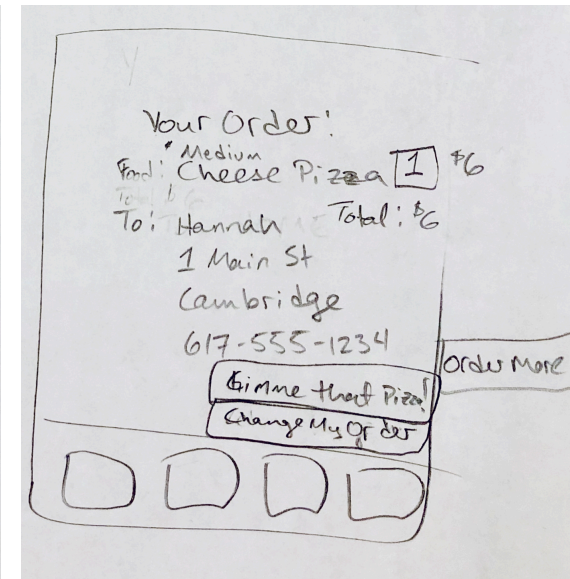 Your Order:
Medium
Food: Cheese Pizza 1 $6
To: Hannah Total: $6
1 Main St
Cambridge
617-555-1234
Order More
Gimme that Pizza!
Change My Order